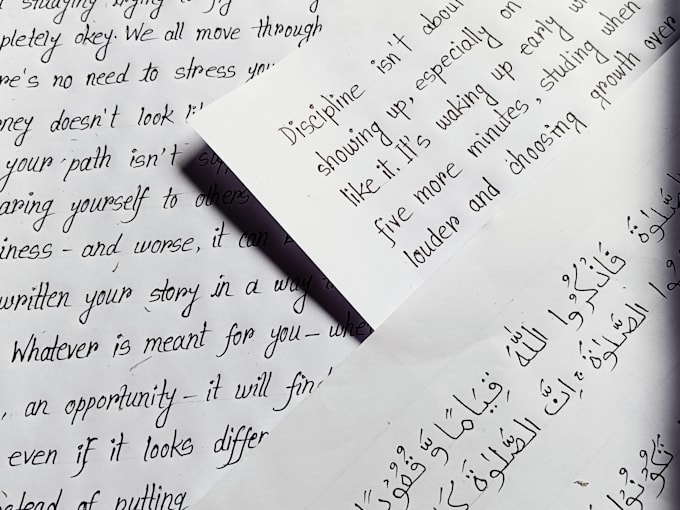 studying trying to
pletely okey. We all move through
re's no need to stress
ney doesn't look
your path isn't
aring yourself to others
iness – and worse, it can
written your story in a way
Whatever is meant for you –
, an opportunity – it will
even if it looks differ
stead of putting
Discipline isn't about
showing up, especially on
like it. It's waking up early
five more minutes, studing when
louder and choosing growth over
الصَّلٰوةَ فَاذْكُرُوا اللّٰهَ قِيَامًا وَّ قُعُوْدًا
الصَّلٰوةَ ۚ اِنَّ الصَّلٰوةَ
تَكُوْنُوْا